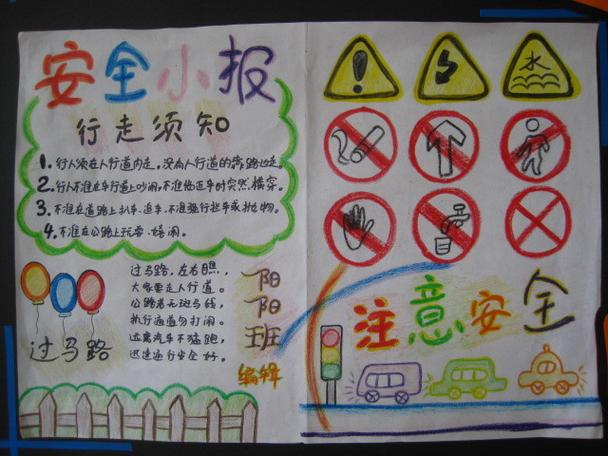 安全小报
行走须知
1. 行人须在人行道内走,没有人行道的靠路边走。
2. 行人不准在车行道上吵闹,不准临近车时突然横穿。
3. 不准在道路上扒车、追车、不准强行拦车或抛物。
4. 不准在公路上玩耍、嬉闹。
过马路,左右瞧,
大家要走人行道。
公路若无斑马线,
执行通句打闹。
远离汽车不猛跑,
迅速通行安全好。
过马路
阳阳班
编辑
水
注意安全